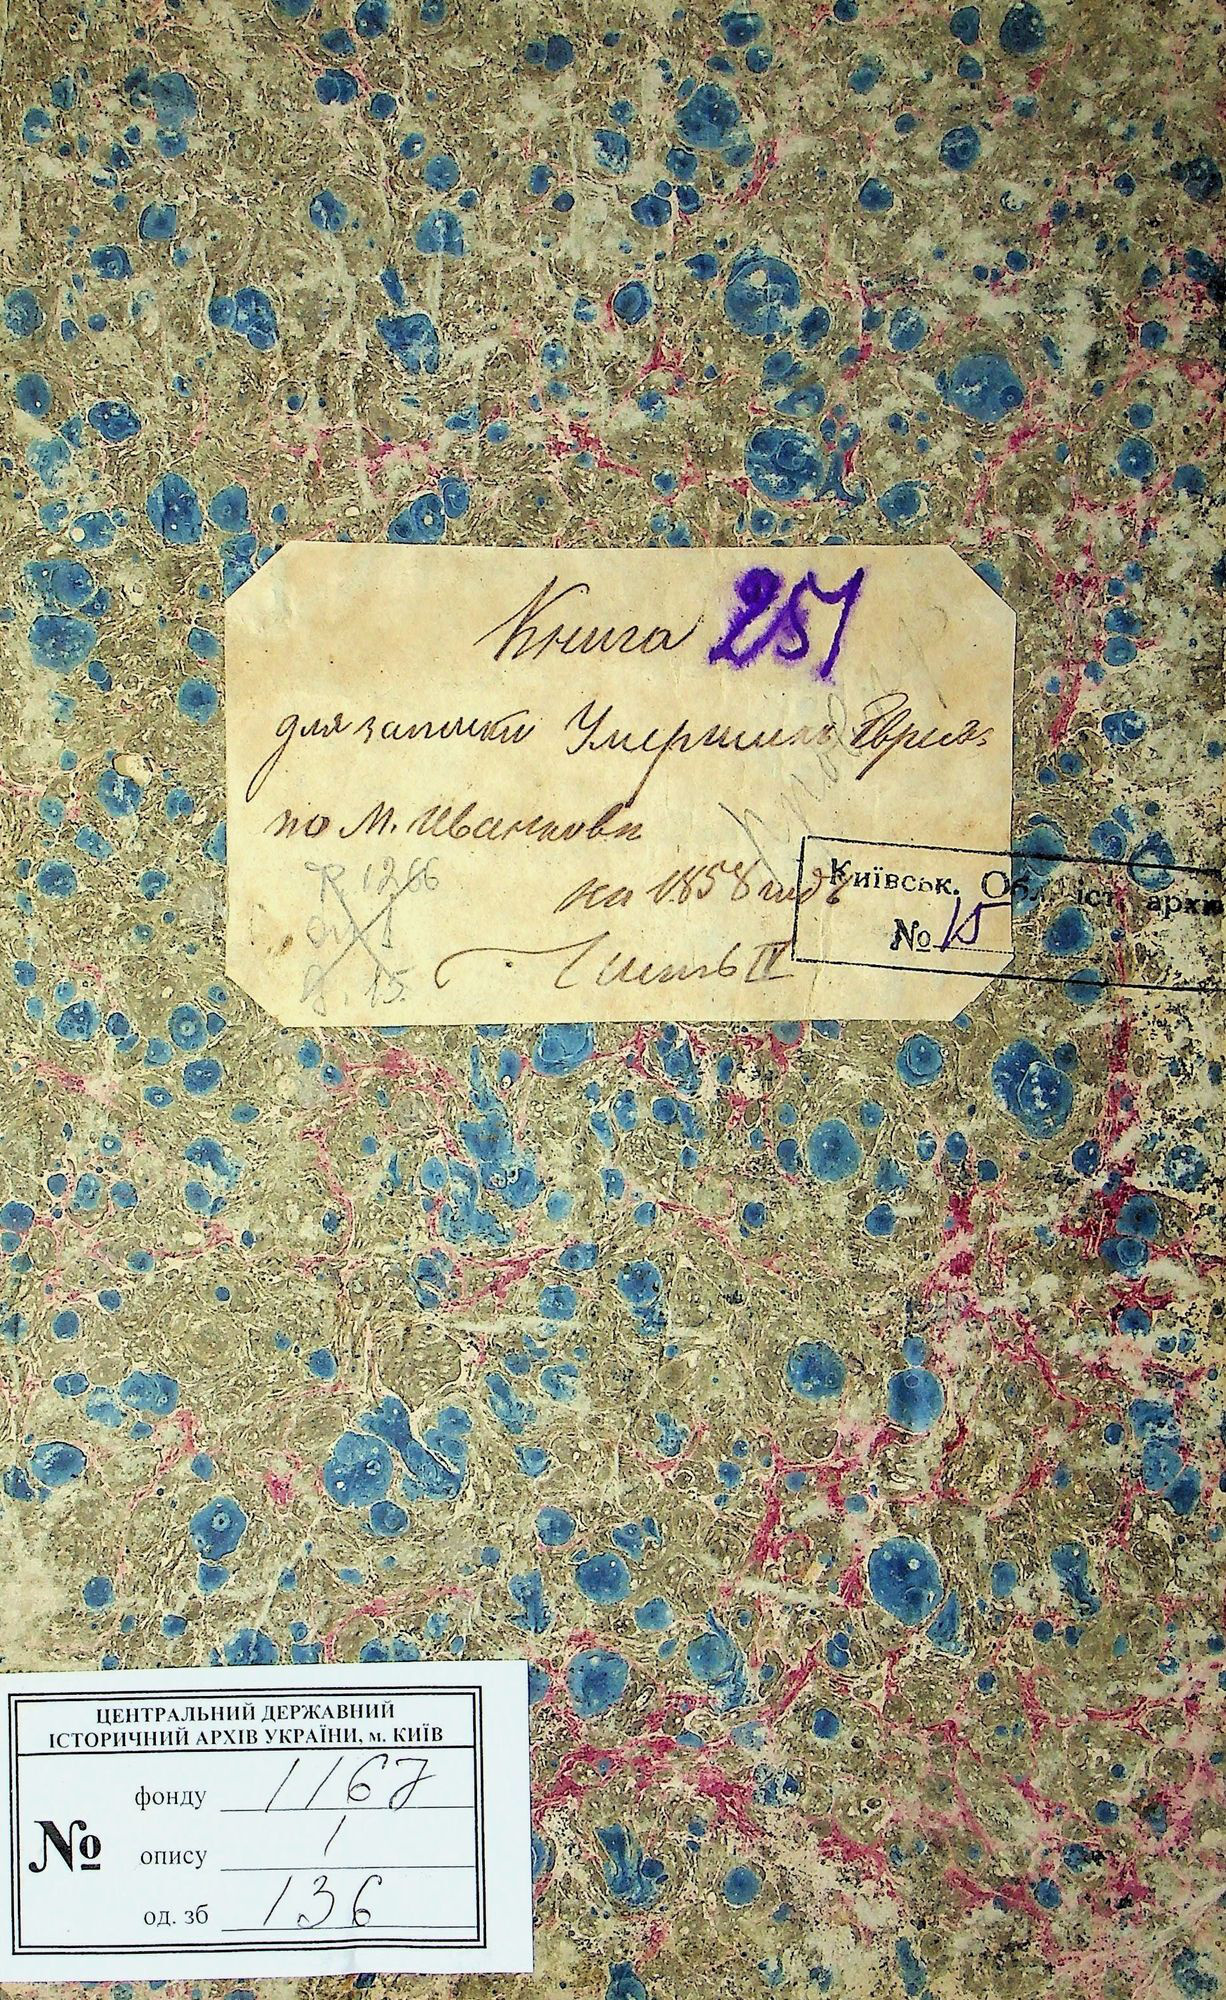 Книга 251
для записки Умершихъ Евреевъ
по М. Иванкови
на 1858 годъ
Часть IV
Р. 1266
оп 1
д. 15.
Київськ. Обл. іст. архив
№ 15
ЦЕНТРАЛЬНИЙ ДЕРЖАВНИЙ
ІСТОРИЧНИЙ АРХІВ УКРАЇНИ, м. КИЇВ
№
фонду 1167
опису 1
од. зб 136